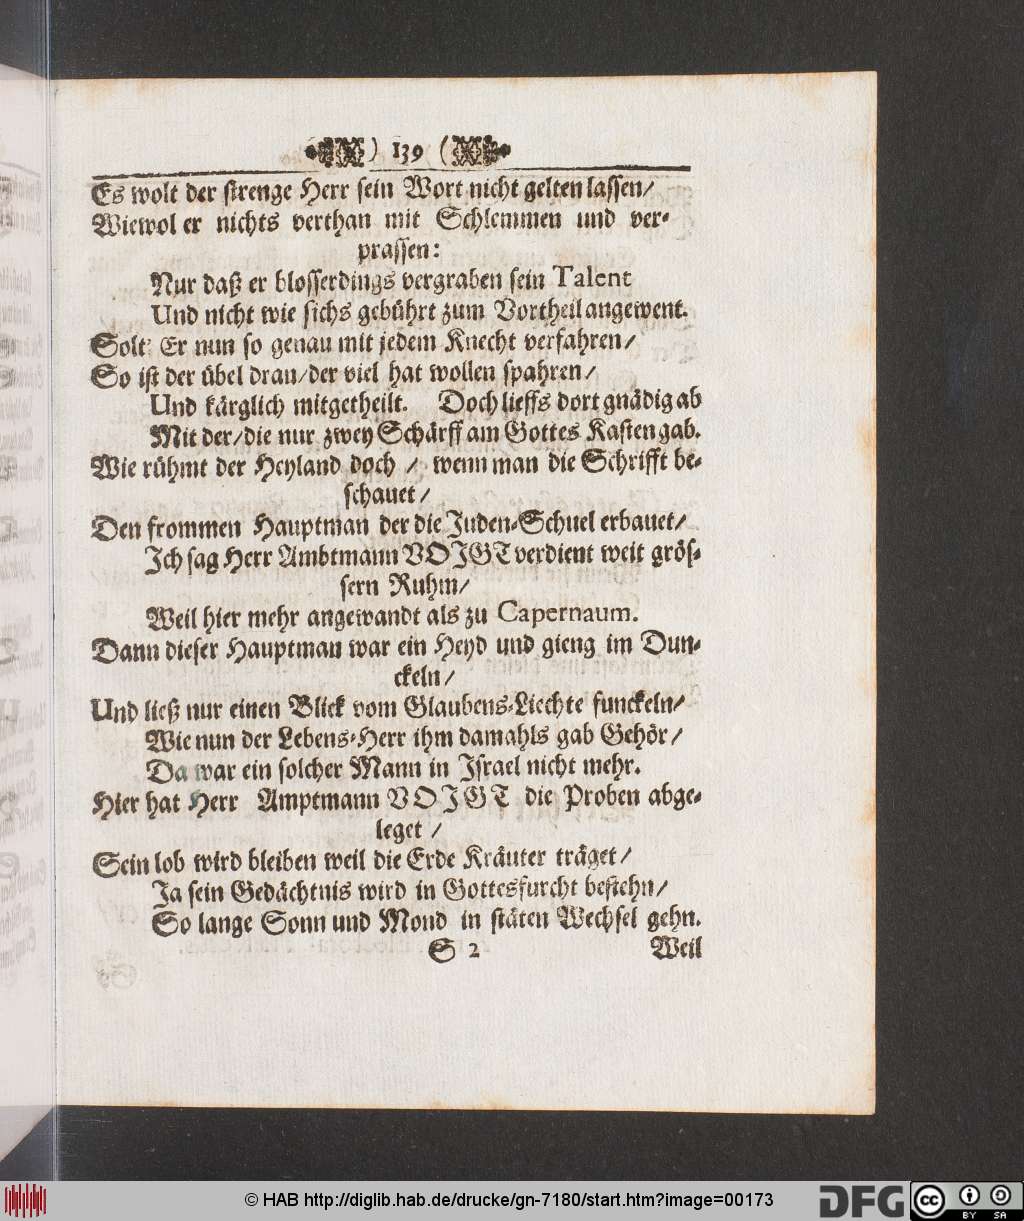 ) 139 (
Es wolt der strenge Herr sein Wort nicht gelten lassen/
Wiewol er nichts verthan mit Schlemmen und ver-
prassen:
Nur daß er blosserdings vergraben sein Talent
Und nicht wie sichs gebührt zum Vortheil angewent.
Solt' Er nun so genau mit jedem Knecht verfahren/
So ist der übel dran/der viel hat wollen spahren/
Und kärglich mitgetheilt. Doch lieffs dort gnädig ab
Mit der/die nur zwey Schärff am Gottes Kasten gab.
Wie rühmt der Heyland doch / wenn man die Schrifft be-
schauet/
Den frommen Hauptman der die Juden-Schuel erbauet/
Ich sag Herr Ambtmann VOIGT verdient weit grös-
sern Ruhm/
Weil hier mehr angewandt als zu Capernaum.
Dann dieser Hauptman war ein Heyd und gieng im Dun-
ckeln/
Und ließ nur einen Blick vom Glaubens-Liechte funckeln/
Wie nun der Lebens-Herr ihm damahls gab Gehör/
Da war ein solcher Mann in Israel nicht mehr.
Hier hat Herr Amptmann VOIGT die Proben abge-
leget /
Sein lob wird bleiben weil die Erde Kräuter träget/
Ja sein Gedächtnis wird in Gottesfurcht bestehn/
So lange Sonn und Mond in stäten Wechsel gehn.
S 2 Weil
© HAB http://diglib.hab.de/drucke/gn-7180/start.htm?image=00173
DFG
cc BY SA